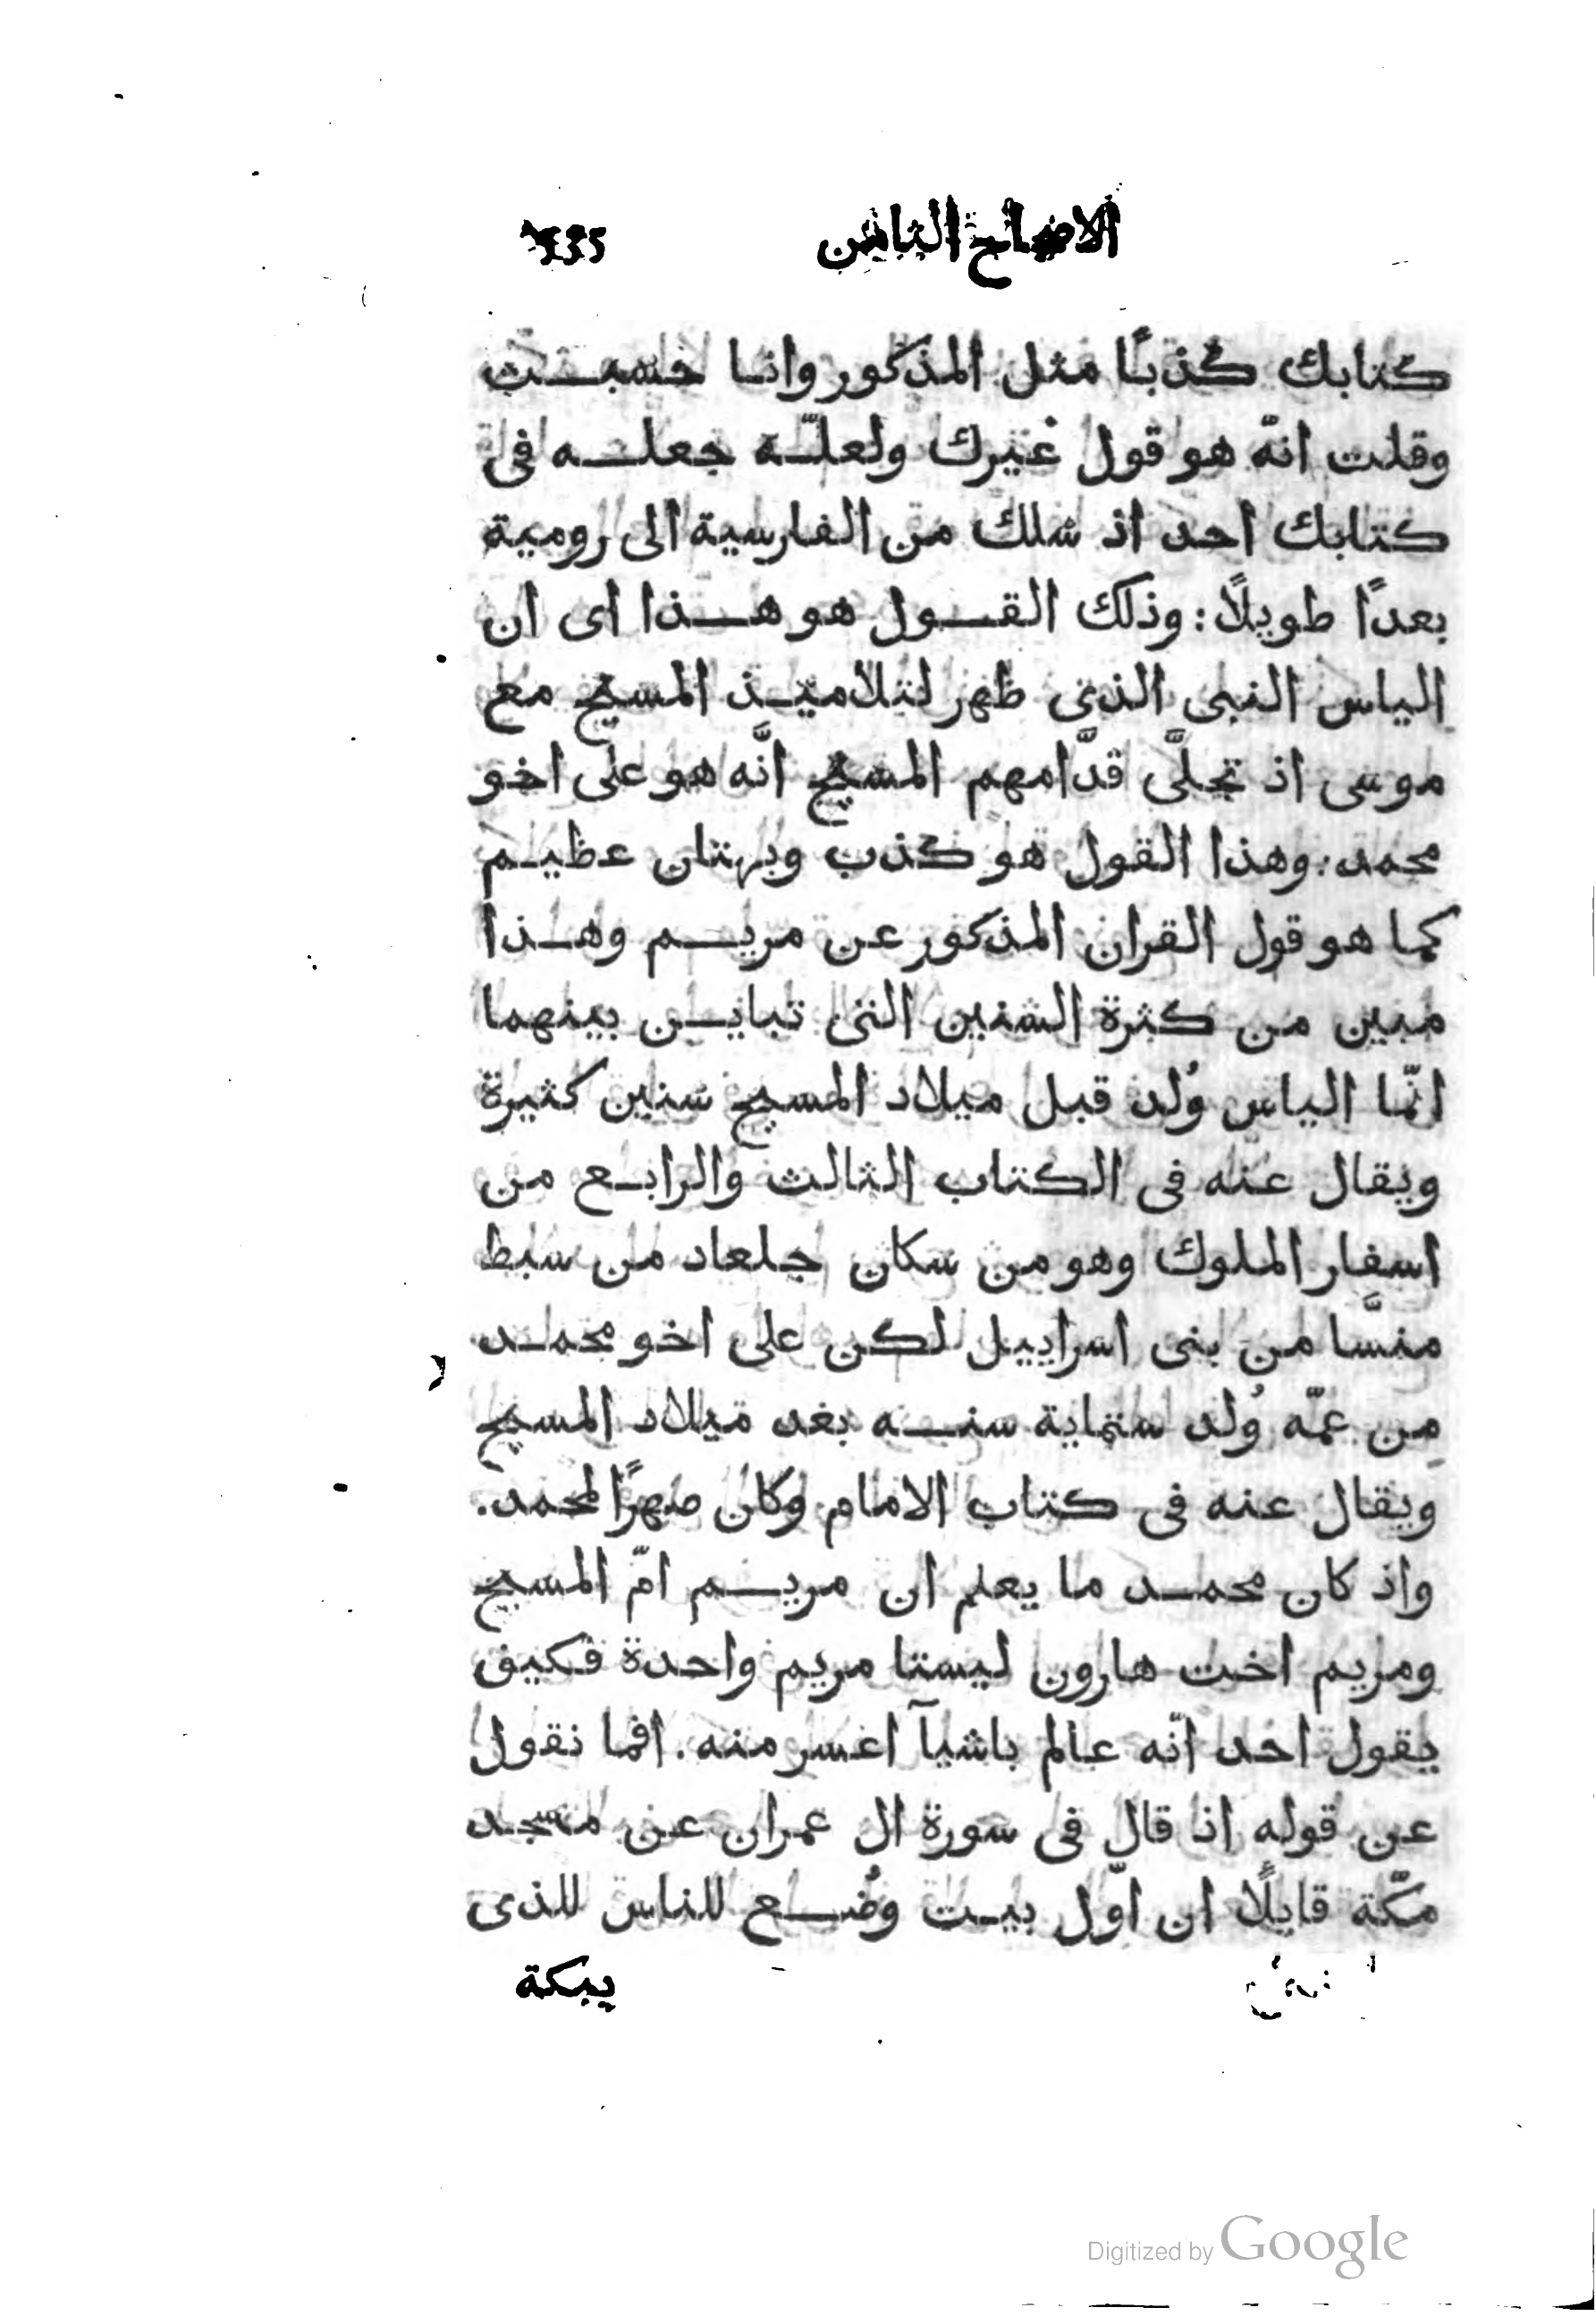 الاضحاح الثامن
كتابك كذبًا مثل المذكور وانا حسبت
وقلت انّه هو قول غيرك ولعلّه جعله فى
كتابك احد اذ سلك من الفارسية الى رومية
بعدًا طويلًا: وذلك القول هو هذا اى ان
الياس النبى الذى ظهر لتلاميذ المسيح مع
موسى اذ تجلَّى قدّامهم المسيح انَّه هو على اخو
محمد: وهذا القول هو كذب وبهتان عظيم
كما هو قول القران المذكور عن مريم وهذا
مبين من كثرة السنين التى تباين بينهما
انّما الياس وُلد قبل ميلاد المسيح سنين كثيرة
ويقال عنه فى الكتاب الثالث والرابع من
اسفار الملوك وهو من سكان جلعاد من سبط
منسَّا من بنى اسراييل لكن على اخو محمد
مِن عمّه وُلد ستماية سنه بعد ميلاد المسيح
ويقال عنه فى كتاب الامام وكان صهرًا لمحمد.
واذ كان محمد ما يعلم ان مريم امّ المسيح
ومريم اخت هارون ليستا مريم واحدة فكيف
يقول احد انّه عالم باشيآ اعسر منه. افما نقول
عن قوله اذا قال فى سورة ال عمران عن مسجد
مكّة قايلًا ان اوّل بيت وُضع للناس للذى
يبكة
Digitized by Google